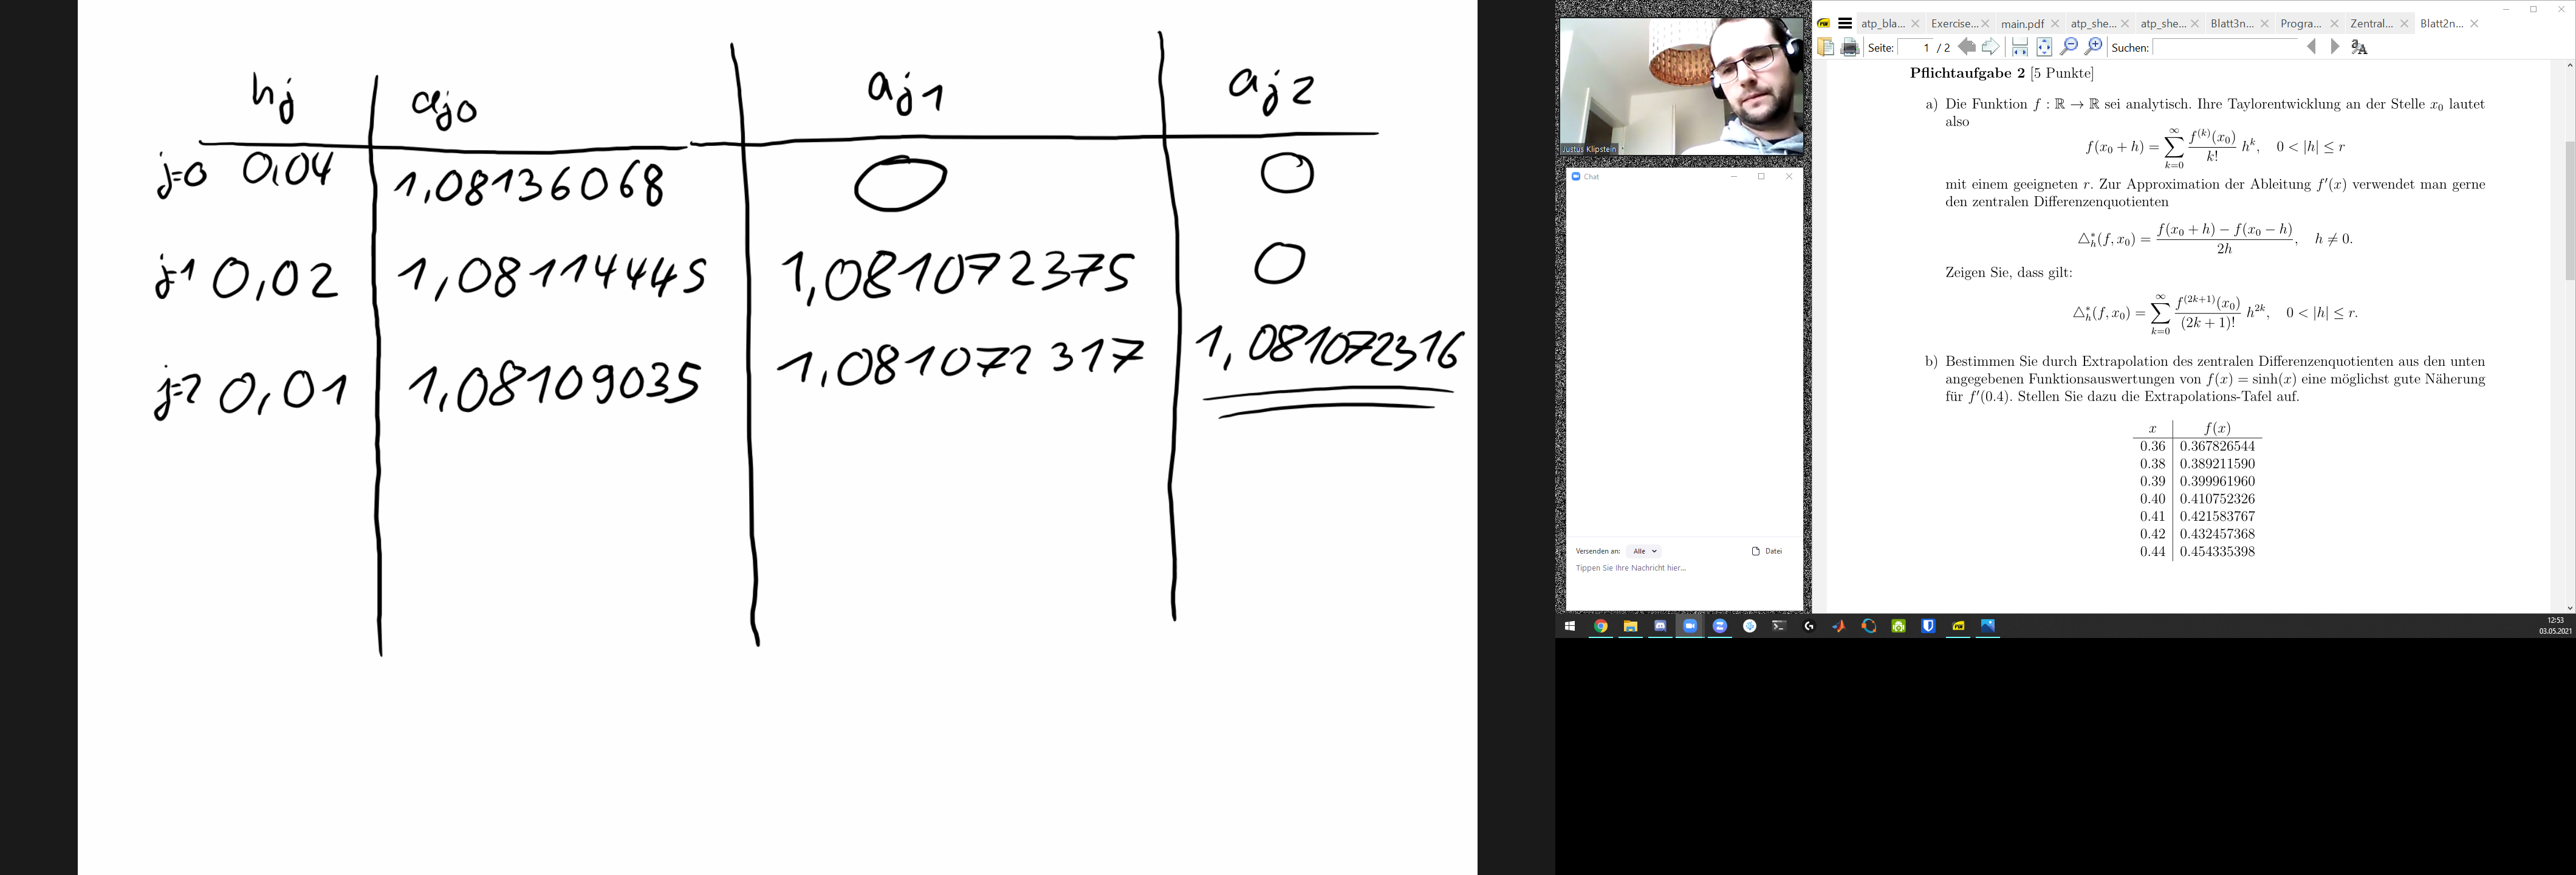 hj aj0 aj1 aj2
j=0 0,04 1,08136068 0 0
j=1 0,02 1,08114445 1,081072375 0
j=2 0,01 1,08109035 1,081072317 1,081072316
Justus Klipstein
Chat
Versenden an: Alle Datei
Tippen Sie Ihre Nachricht hier...
atp_bla... Exercise... main.pdf atp_she... atp_she... Blatt3n... Progra... Zentral... Blatt2n...
Seite: 1 / 2 Suchen:
Pflichtaufgabe 2 [5 Punkte]
a) Die Funktion f : ℝ → ℝ sei analytisch. Ihre Taylorentwicklung an der Stelle x₀ lautet
also
f(x₀ + h) = ∑_{k=0}^{∞} f^{(k)}(x₀)/k! h^k, 0 < |h| ≤ r
mit einem geeigneten r. Zur Approximation der Ableitung f′(x) verwendet man gerne
den zentralen Differenzenquotienten
△*_h(f, x₀) = (f(x₀ + h) − f(x₀ − h))/2h, h ≠ 0.
Zeigen Sie, dass gilt:
△*_h(f, x₀) = ∑_{k=0}^{∞} f^{(2k+1)}(x₀)/(2k + 1)! h^{2k}, 0 < |h| ≤ r.
b) Bestimmen Sie durch Extrapolation des zentralen Differenzenquotienten aus den unten
angegebenen Funktionsauswertungen von f(x) = sinh(x) eine möglichst gute Näherung
für f′(0.4). Stellen Sie dazu die Extrapolations-Tafel auf.
x f(x)
0.36 0.367826544
0.38 0.389211590
0.39 0.399961960
0.40 0.410752326
0.41 0.421583767
0.42 0.432457368
0.44 0.454335398
12:53
03.05.2021